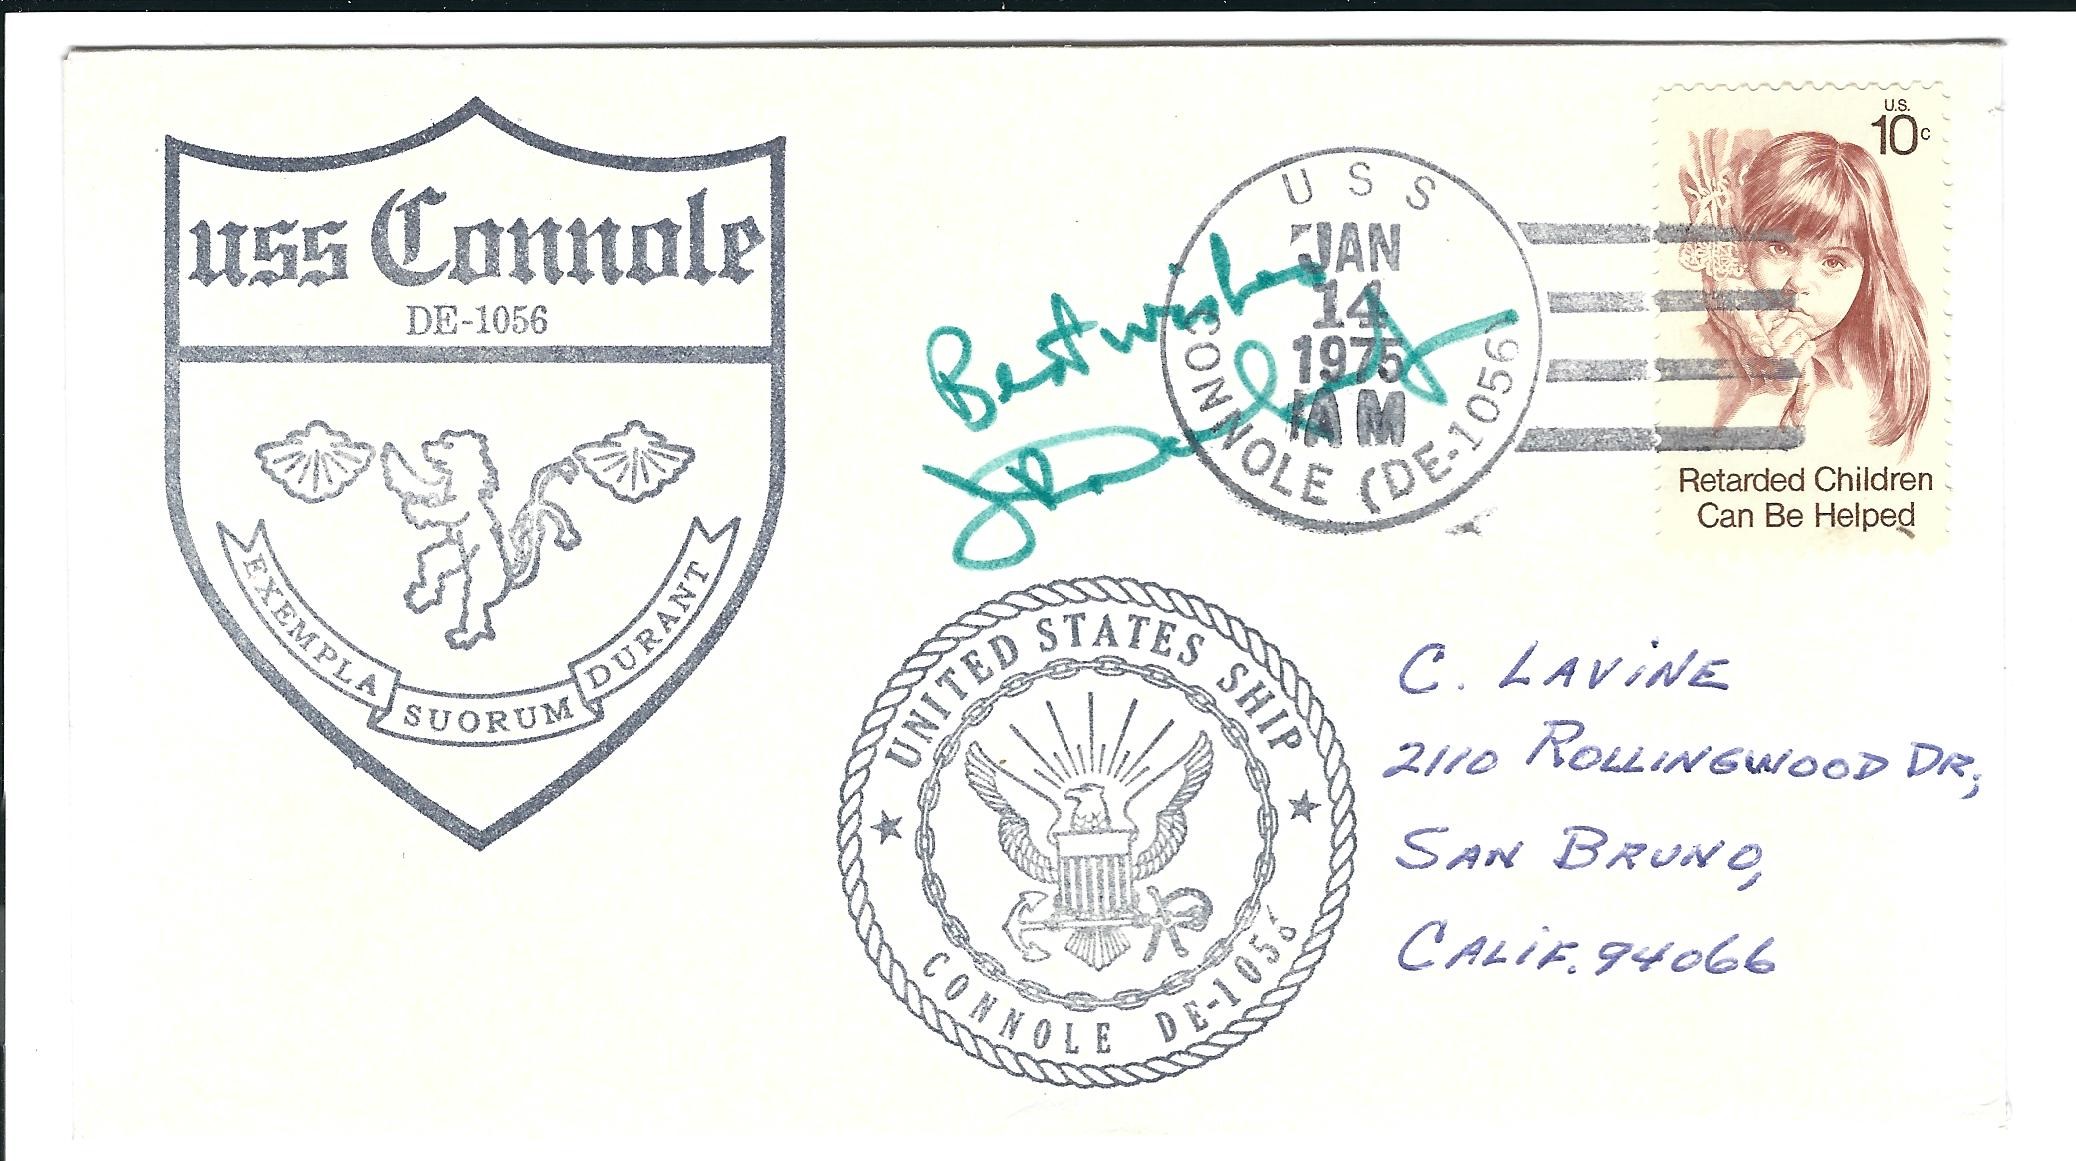 uss Connole
DE-1056
EXEMPLA SUORUM DURANT
Best wishes
USS
CONNOLE (DE-1056)
JAN
14
1975
AM
U.S.
10c
Retarded Children
Can Be Helped
UNITED STATES SHIP
CONNOLE DE-1056
C. LAViNE
2110 ROLLINGWOOD DR,
SAN BRUNO,
CALiF. 94066